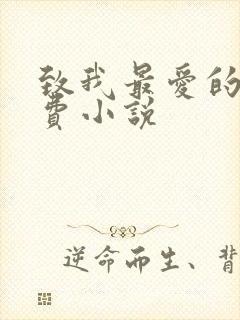 致我最爱的
費小說
逆命而生、背